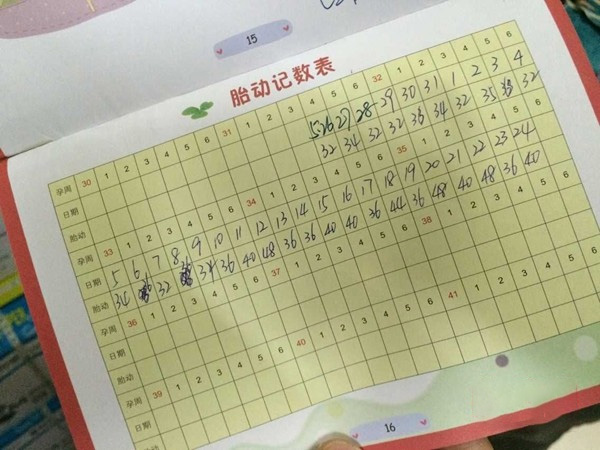 15
胎动记数表
孕周 30 1 2 3 4 5 6 31 1 2 3 4 5 6 32 1 2 3 4 5 6
日期 26 27 28 29 30 31 1 2 3 4
胎动 32 34 32 32 36 34 32 35 32
孕周 33 1 2 3 4 5 6 34 1 2 3 4 5 6 35 1 2 3 4 5 6
日期 5 6 7 8 9 10 11 12 13 14 15 16 17 18 19 20 21 22 23 24
胎动 34 36 32 36 34 36 40 48 36 36 40 40 36 44 36 48 40 48 36 40
孕周 36 1 2 3 4 5 6 37 1 2 3 4 5 6 38 1 2 3 4 5 6
日期
胎动
孕周 39 1 2 3 4 5 6 40 1 2 3 4 5 6 41 1 2 3 4 5 6
日期
16